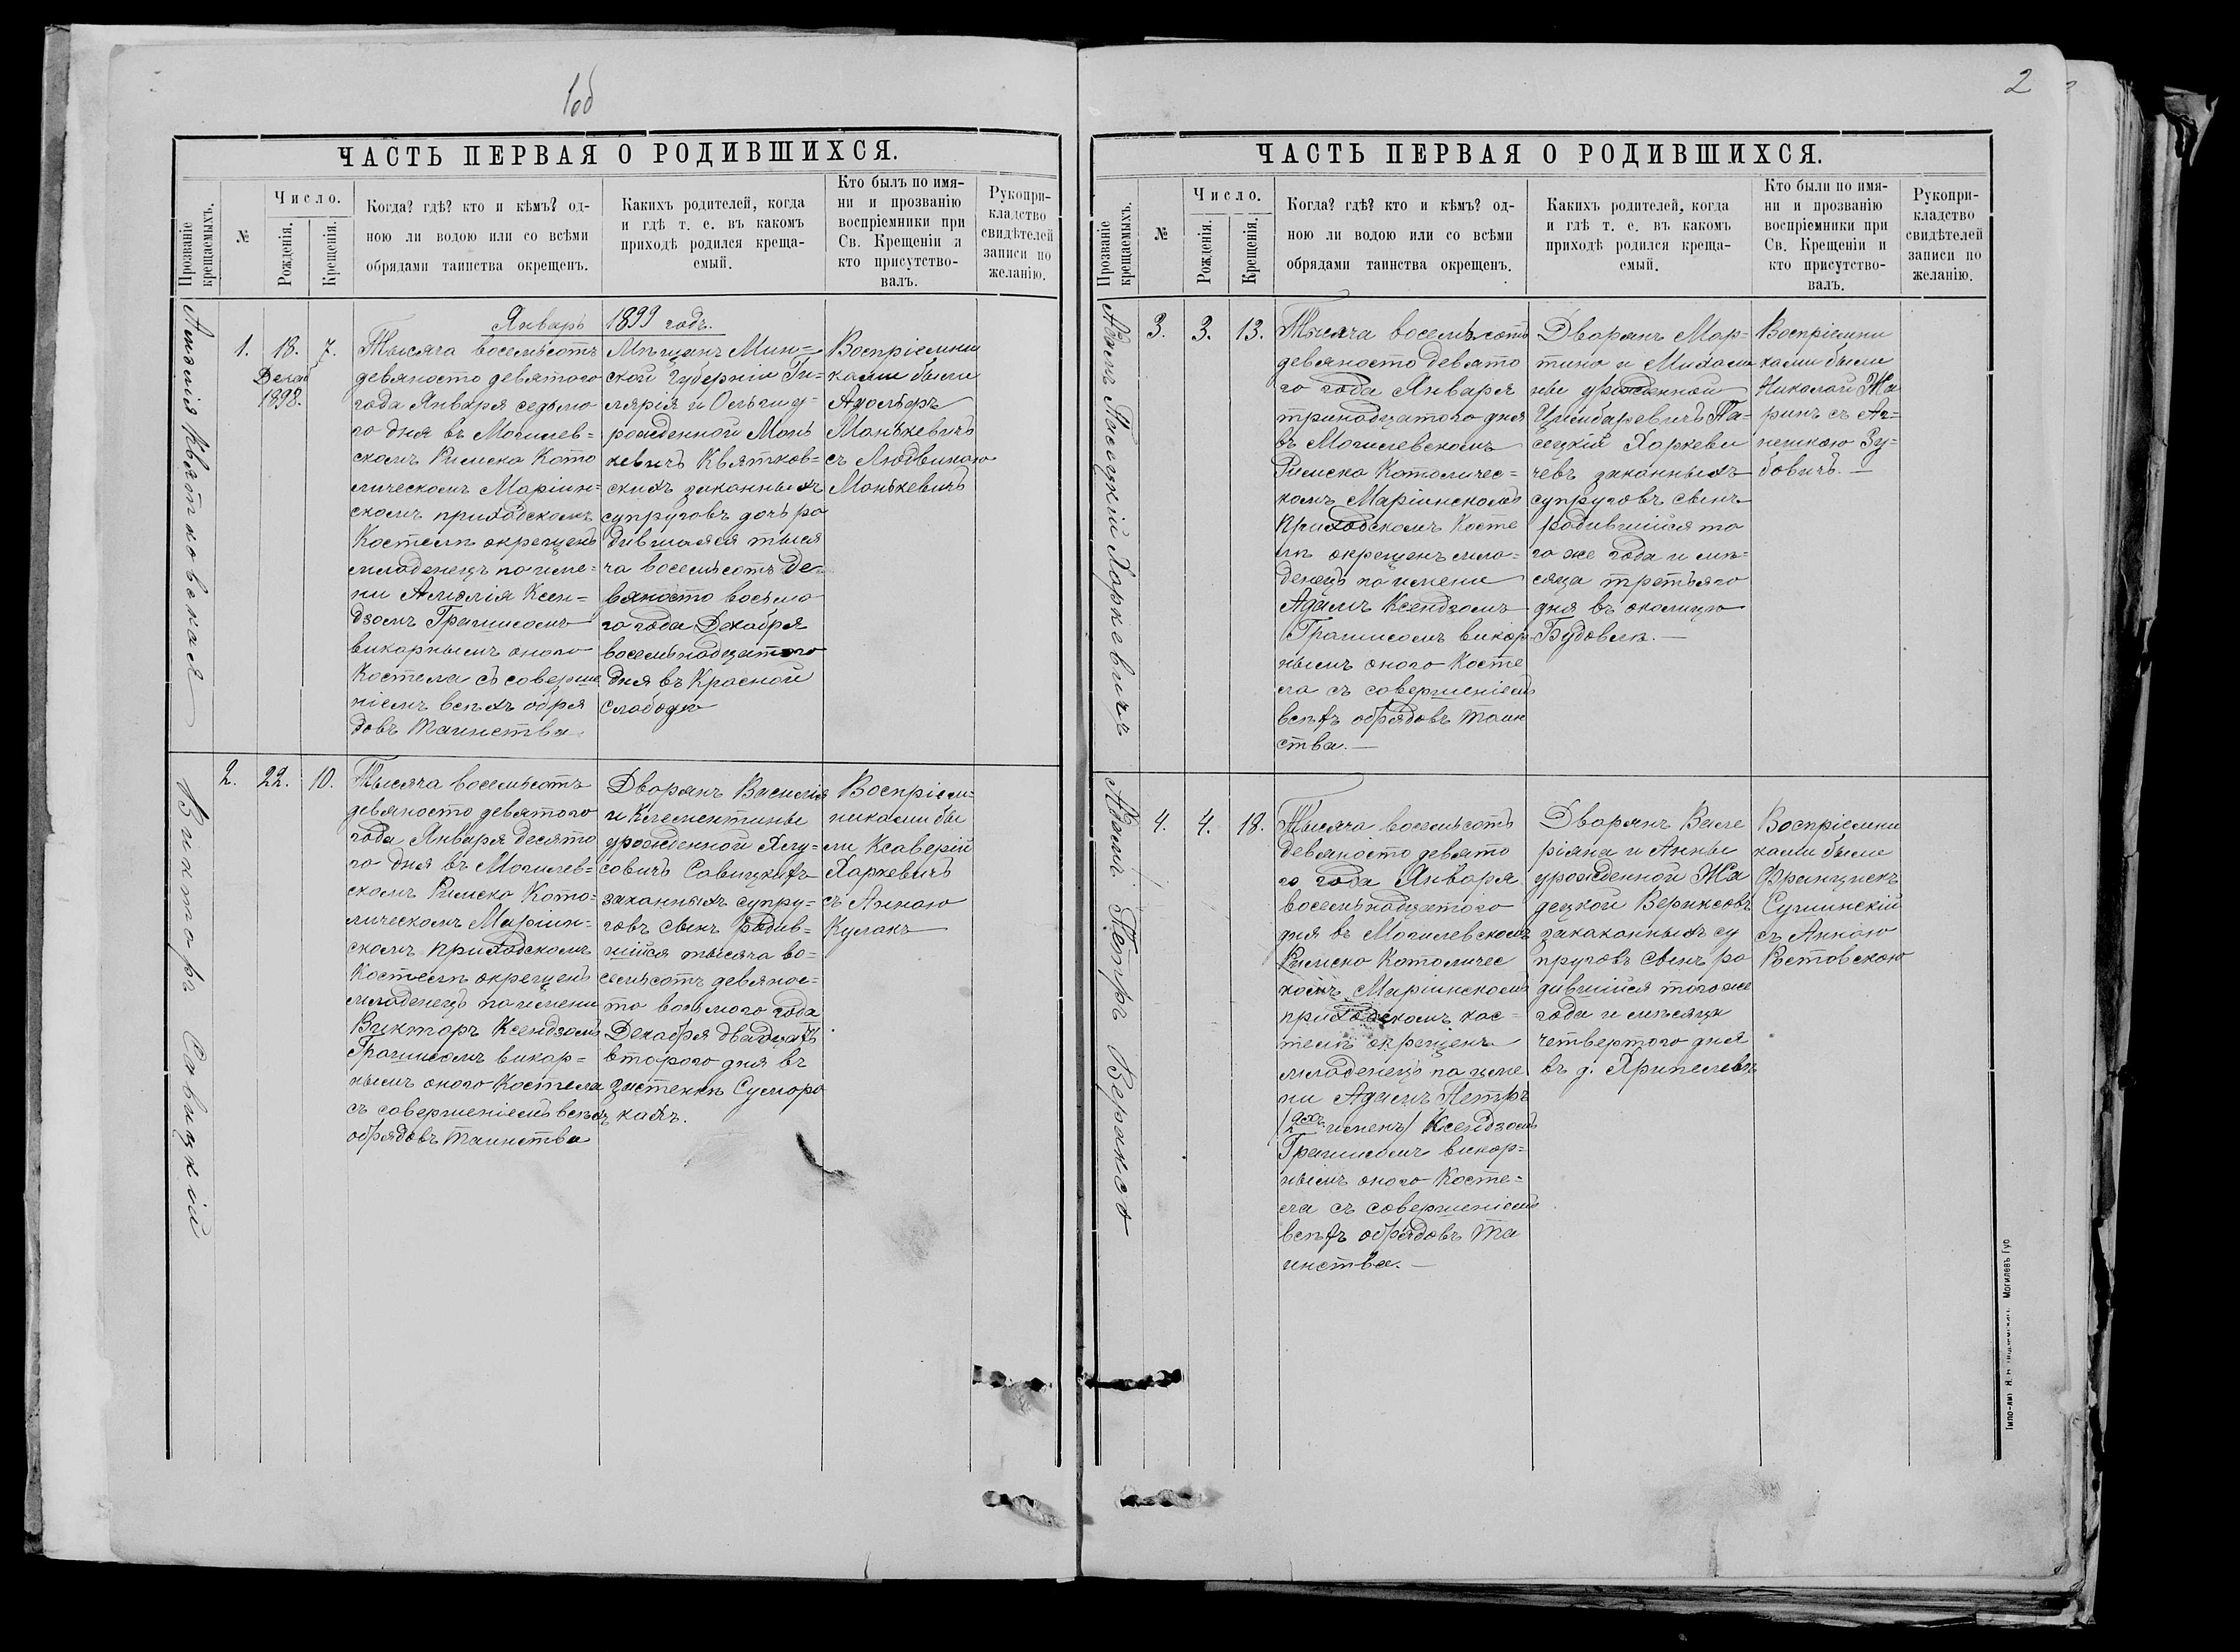 1об
ЧАСТЬ ПЕРВАЯ О РОДИВШИХСЯ.
Прозваніе крещаемыхъ.
№
Число.
Рожденія.
Крещенія.
Когда? гдѣ? кто и кѣмъ? од-
ною ли водою или со всѣми
обрядами таинства окрещенъ.
Какихъ родителей, когда
и гдѣ т. е. въ какомъ
приходѣ родился креща-
емый.
Кто былъ по имя-
ни и прозванію
воспріемники при
Св. Крещеніи и
кто присутство-
валъ.
Рукопри-
кладство
свидѣтелей
записи по
желанію.
Январь 1899 годъ.
Амалія Квятковская
1.
18.
Декаб
1898.
7.
Тысяча восемьсотъ
девяносто девятого
года Января седьмо
го дня въ Могилев=
скомъ Римско Като
лическомъ Маріин=
скомъ приходскомъ
Костелѣ окрещенъ
младенецъ по име=
ни Амалія Ксен=
дзомъ Грашисомъ
викарнымъ оного
Костела съ соверше
ніемъ всѣхъ обря
довъ таинства
Мѣщанъ Мин=
ской Губерніи Ги=
лярія и Ольги у=
рожденной Мань
кевичъ Квятков=
скихъ законныхъ
супруговъ дочь ро
дившаяся тыся
ча восемьсотъ де=
вяносто восьмо
го года Декабря
восемьнадцатого
дня въ Красной
Слободѣ
Воспріемни
ками были
Адольфъ
Манькевичъ
съ Людвикою
Манькевичъ
Викторъ Савицкій
2.
22.
10.
Тысяча восемьсотъ
девяносто девятого
года Января десято
го дня въ Могилев=
скомъ Римско Като=
лическомъ Маріин=
скомъ приходскомъ
Костелѣ окрещенъ
младенецъ по имени
Викторъ Ксендзомъ
Грашисомъ викар=
нымъ оного Костела
съ совершеніемъ всѣхъ
обрядовъ таинства
Дворянъ Василія
и Клементины
урожденной Хлу=
совичъ Савицкихъ
законныхъ супру=
говъ сынъ родив=
шійся тысяча во=
семьсотъ девянос=
то восьмого года
Декабря двадцать
второго дня въ
застенкѣ Суморо
кахъ.
Воспріем=
никами бы
ли Ксаверій
Харкевичъ
съ Анною
Кулакъ
2
ЧАСТЬ ПЕРВАЯ О РОДИВШИХСЯ.
Прозваніе крещаемыхъ.
№
Число.
Рожденія.
Крещенія.
Когда? гдѣ? кто и кѣмъ? од-
ною ли водою или со всѣми
обрядами таинства окрещенъ.
Какихъ родителей, когда
и гдѣ т. е. въ какомъ
приходѣ родился креща-
емый.
Кто были по имя-
ни и прозванію
воспріемники при
Св. Крещеніи и
кто присутство-
валъ.
Рукопри-
кладство
свидѣтелей
записи по
желанію.
Адамъ Пасецкій Харкевичъ
3.
3.
13.
Тысяча восемьсотъ
девяносто девято
го года Января
тринадцатого дня
въ Могилевскомъ
Римско Католичес=
комъ Маріинскомъ
Приходскомъ Косте
лѣ окрещенъ мла=
денецъ по имени
Адамъ Ксендзомъ
Грашисомъ викар
нымъ оного Косте
ла съ совершеніемъ
всѣхъ обрядовъ таин
ства.—
Дворянъ Мар=
тина и Михали
ны урожденной
Цимбаревичъ Па=
сецкій Харкеви
чевъ законныхъ
супруговъ сынъ
родившійся то
го же года и мѣ=
сяца третьяго
дня въ околицѣ
Будовлѣ.—
Воспріемни
ками были
Николай Жа
ринъ съ Аг=
нешкою Зу=
бовичъ.—
Адамъ Петръ Вераксо
4.
4.
18.
Тысяча восемьсотъ
девяносто девято
го года Января
восемьнадцатого
дня въ Могилевскомъ
Римско Католичес
комъ Маріинскомъ
приходскомъ кос=
телѣ окрещенъ
младенецъ по име
ни Адамъ Петръ
/2 ухъ именъ/ Ксендзомъ
Грашисомъ викар=
нымъ оного Косте=
ла съ совершеніемъ
всѣхъ обрядовъ та
инства.—
Дворянъ Вале
ріана и Анны
урожденной Жа
децкой Вераксовъ
закаканныхъ су
пруговъ сынъ ро
дившійся того же
года и мѣсяца
четвертого дня
въ д. Хрипелевѣ
Воспріемни
ками были
Францискъ
Сушинскій
съ Анною
Ростовскою
Могилевъ Губ